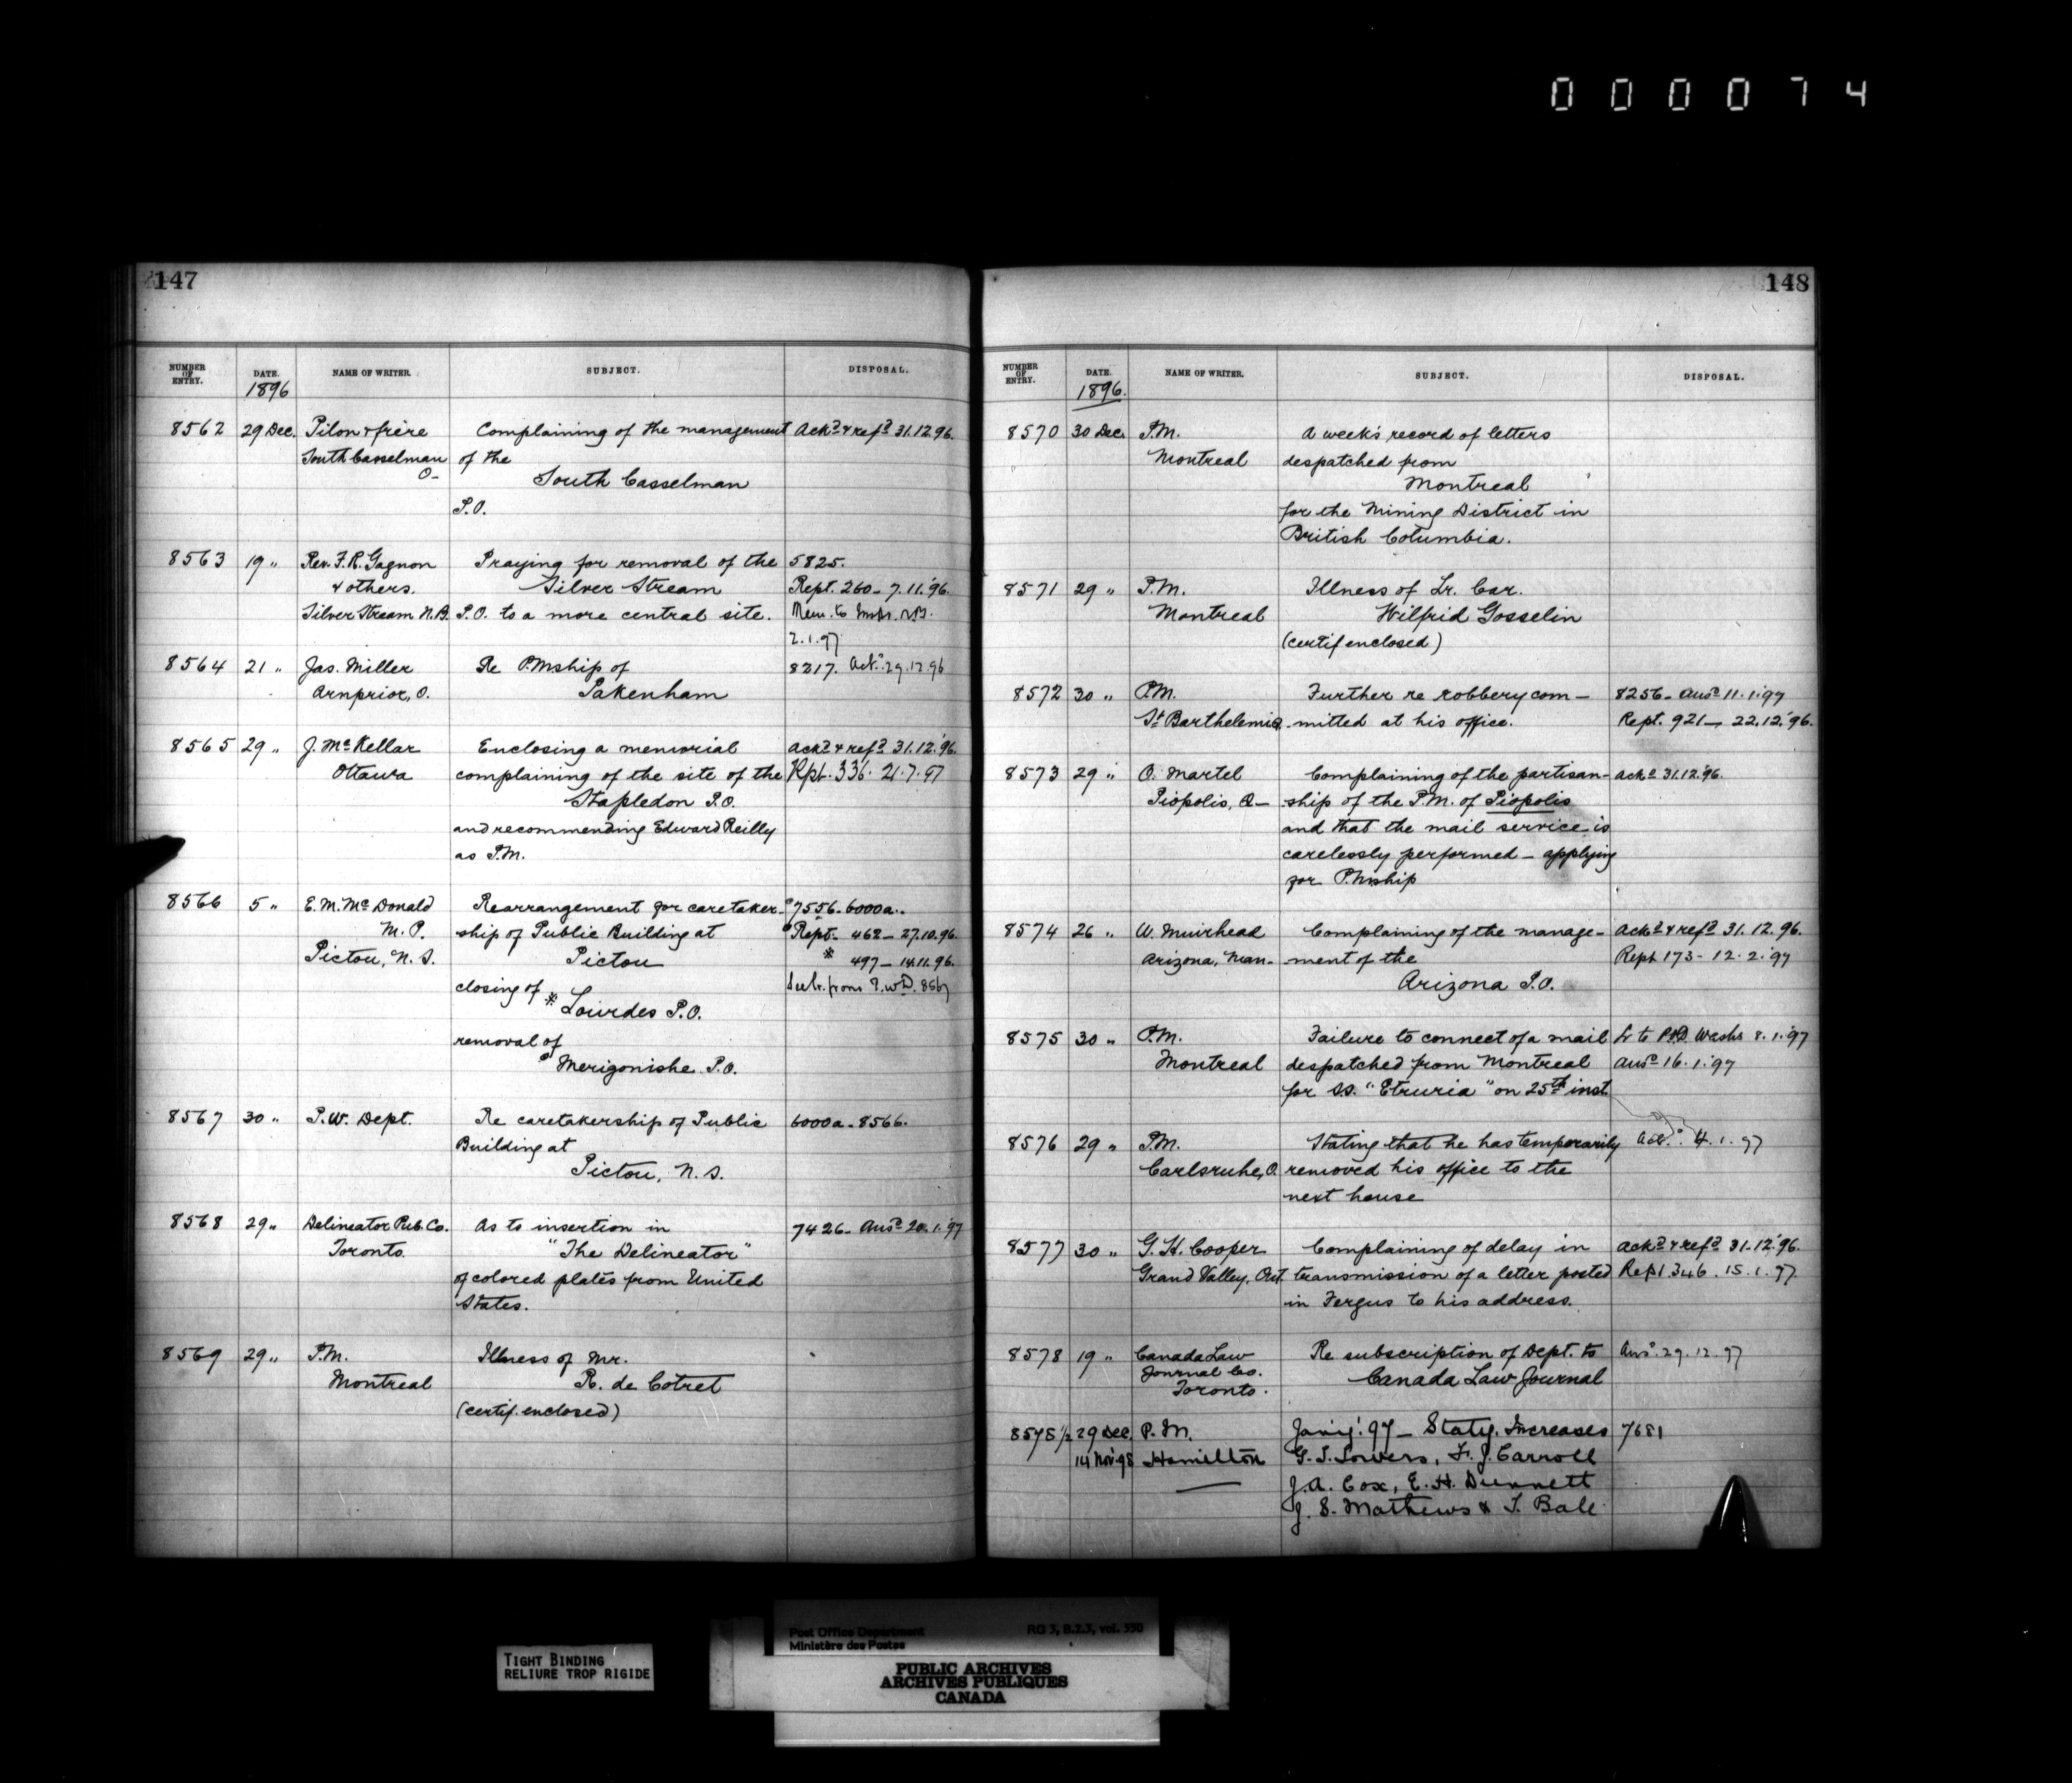 000074
147
NUMBER OF ENTRY. DATE. NAME OF WRITER. SUBJECT. DISPOSAL.
1896
8562 29 Dec. Pilon & frère Complaining of the management Ackd & refd 31.12.96.
South Casselman of the
O- South Casselman
P.O.
8563 19 " Rev. F.R. Gagnon Praying for removal of the 5825.
& others. Silver Stream Rept. 260 - 7.11.'96.
Silver Stream N.B. P.O. to a more central site.
2.1.97
8564 21 " Jas. Miller Re P.Mship of 8217. Ackd 29.12.96
Arnprior, O. Pakenham
8565 29 " J. McKellar Enclosing a memorial Ackd & refd 31.12.'96.
Ottawa complaining of the site of the Rpt. 336. 21.7.97
Stapledon P.O.
and recommending Edward Reilly
as P.M.
8566 5 " E. M. McDonald Rearrangement for caretaker- 7556-6000a..
M.P. ship of Public Building at Rept- 462 - 27.10.96.
Pictou, N.S. Pictou * 497 - 14.11.96.
closing of * Lourdes P.O. See lr. from P.W.D. 8567
removal of
Merigonishe P.O.
8567 30 " P.W. Dept. Re caretakership of Public 6000a. 8566.
Building at
Pictou, N.S.
8568 29 " Delineator Pub. Co. As to insertion in 7426- Ansd 20.1.'97
Toronto. "The Delineator"
of colored plates from United
States.
8569 29 " P.M. Illness of Mr.
Montreal R. de Cotret
(certif. enclosed)
148
NUMBER OF ENTRY. DATE. NAME OF WRITER. SUBJECT. DISPOSAL.
1896.
8570 30 Dec. P.M. A week's record of letters
Montreal despatched from
Montreal
for the Mining District in
British Columbia.
8571 29 " P.M. Illness of Lr. Car.
Montreal Wilfrid Gosselin
(certif enclosed)
8572 30 " P.M. Further re robbery com- 8256- Ansd 11.1.97
St Barthelemi Q. mitted at his office. Rept. 921 - 22.12.'96.
8573 29 " O. Martel Complaining of the partisan- Ackd 31.12.'96.
Piopolis, Q- ship of the P.M. of Piopolis
and that the mail service is
carelessly performed - applying
for P.Mship
8574 26 " W. Muirhead Complaining of the manage- Ackd & refd 31.12.96.
Arizona, Man- ment of the Rept 173 - 12.2.97
Arizona P.O.
8575 30 " P.M. Failure to connect of a mail Lr to P.O.D. Washn 8.1.'97
Montreal despatched from Montreal Ansd 16.1.'97
for S.S. "Etruria" on 25th inst.
8576 29 " P.M. Stating that he has temporarily Ackd 4.1.97
Carlsruhe, O. removed his office to the
next house
8577 30 " G. H. Cooper Complaining of delay in Ackd & refd 31.12.'96.
Grand Valley, Ont. transmission of a letter posted Rept 346. 15.1.97
in Fergus to his address.
8578 19 " Canada Law Re subscription of Dept. to Ansd 29.12.97
Journal Co. Canada Law Journal
Toronto.
8578½ 29 Dec. P.M. Jany '97 - Staty. Increases 7681
14 Nov 98 Hamilton G. S. Sowers, F. J. Carroll
J. A. Cox, E. H. Dunnett
J. S. Mathews & T. Bale
Post Office Department RG 3, B.2.3, vol. 550
Ministère des Postes
TIGHT BINDING
RELIURE TROP RIGIDE
PUBLIC ARCHIVES
ARCHIVES PUBLIQUES
CANADA